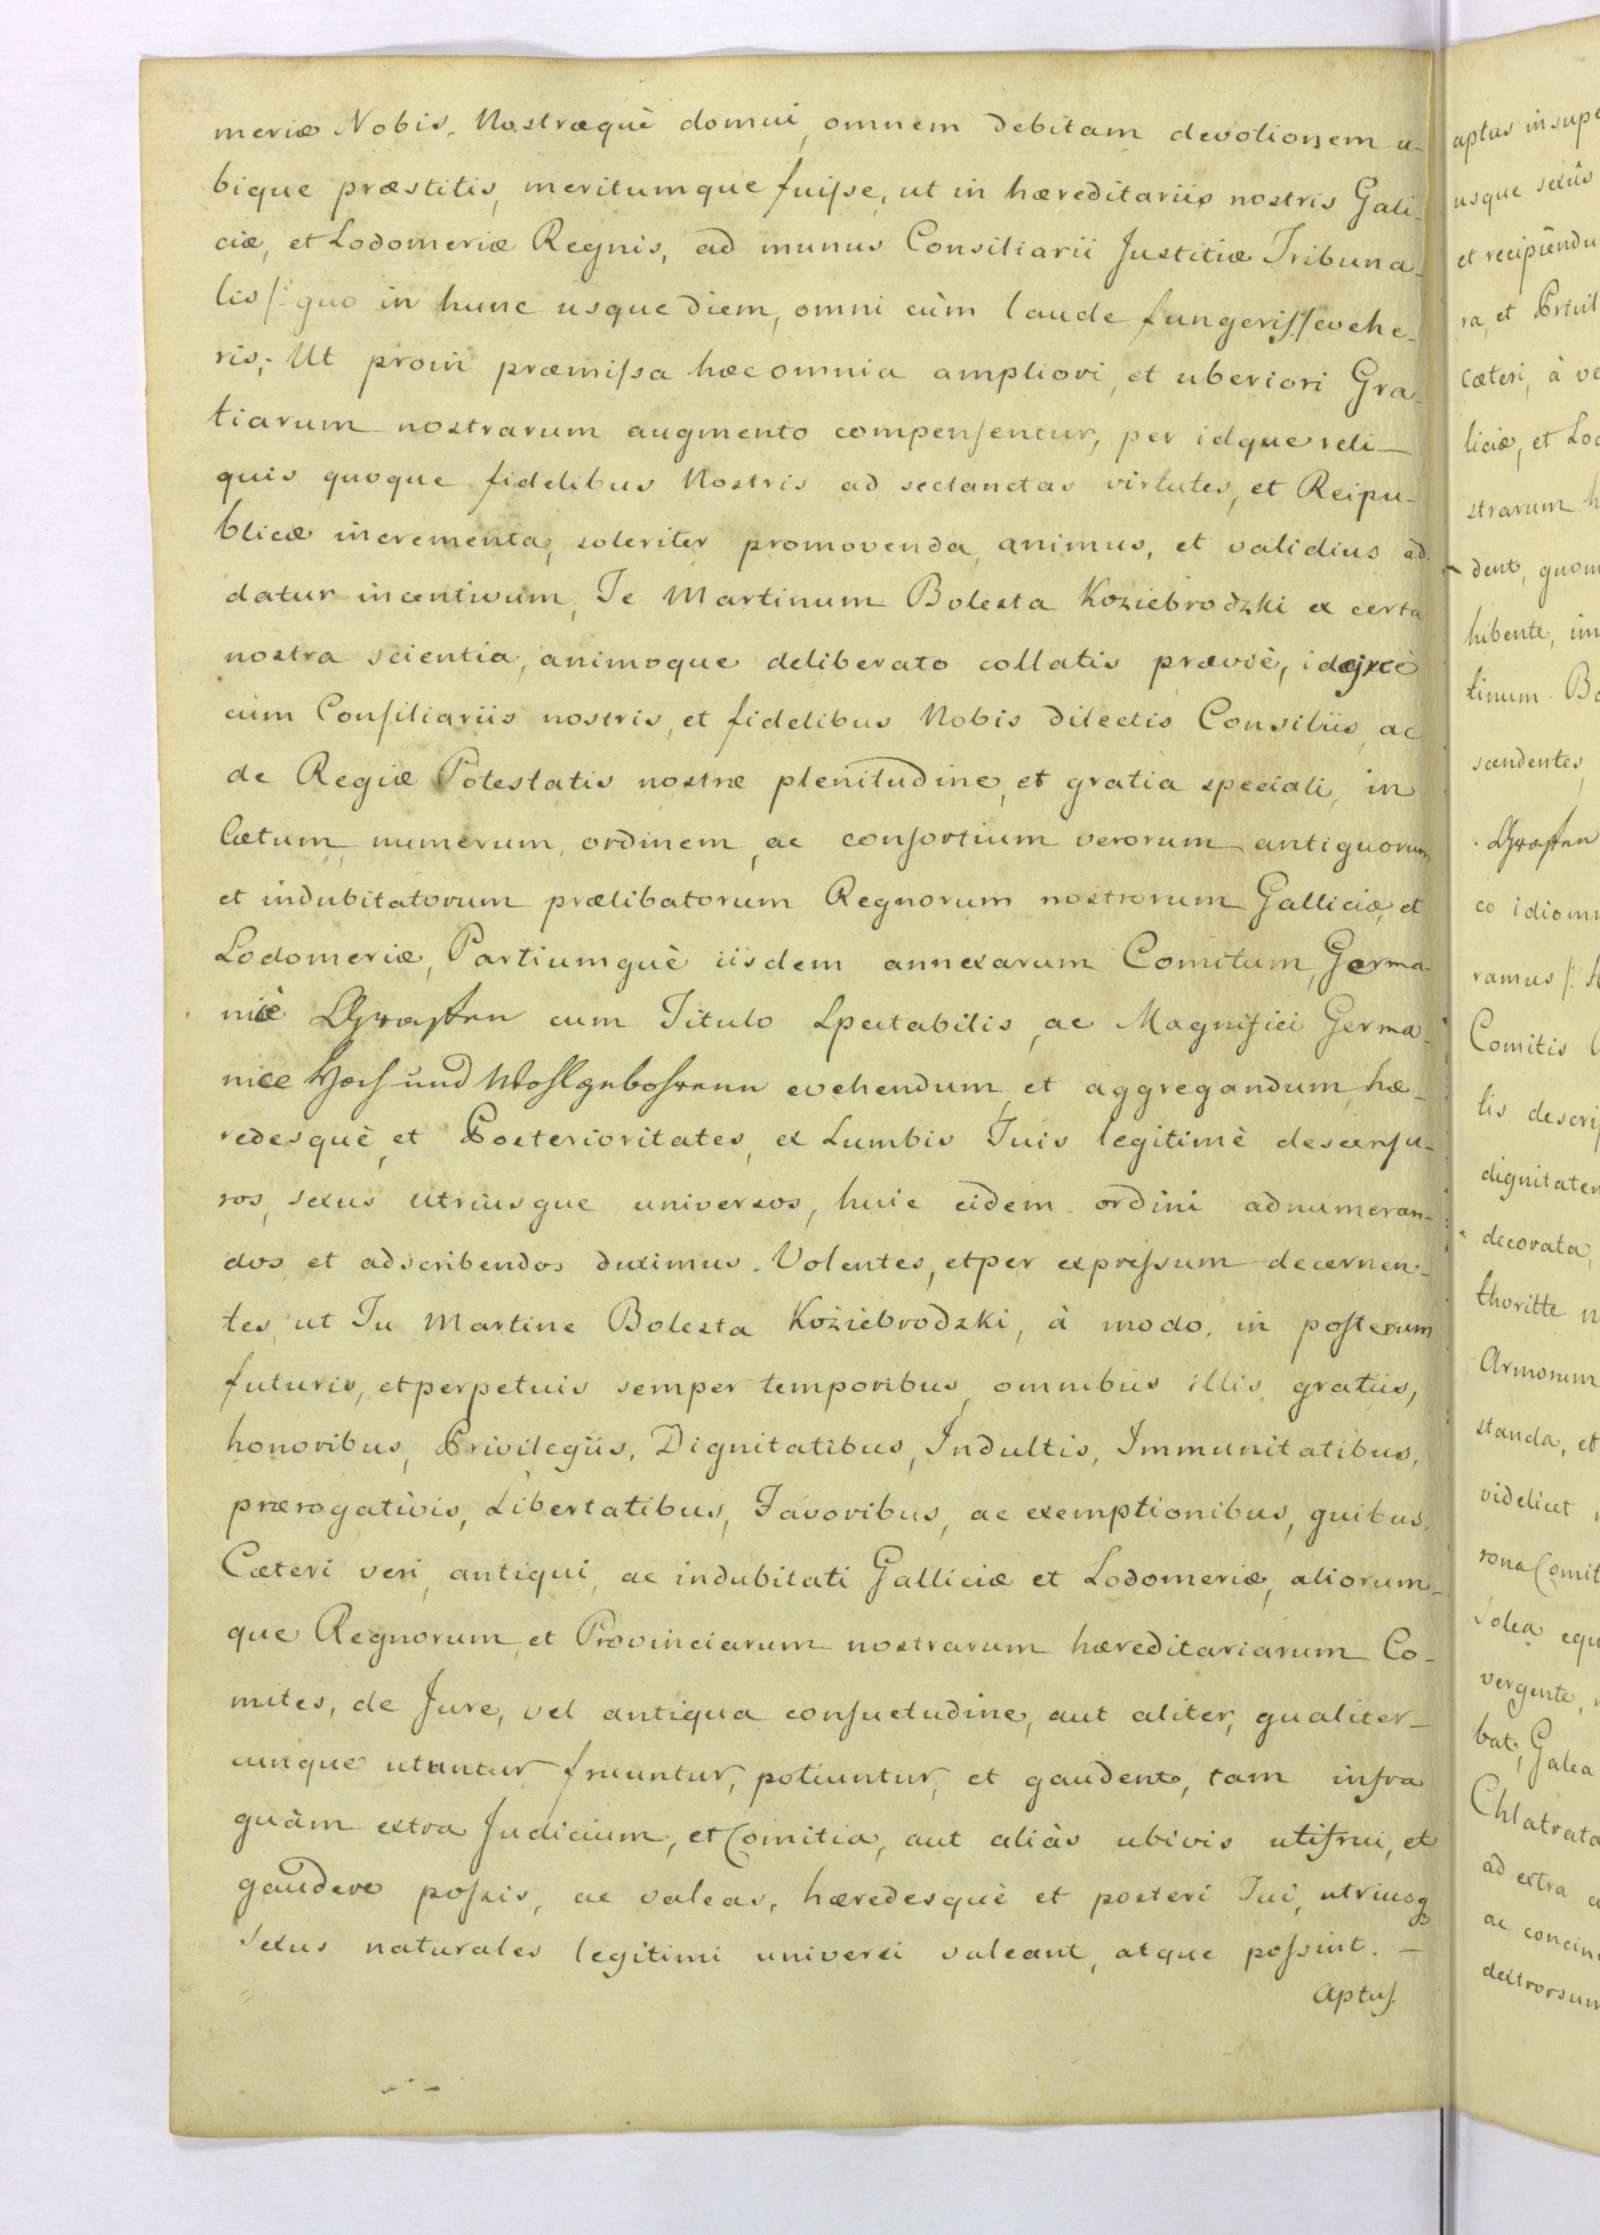 meriæ Nobis, Nostræquè domui, omnem debitam devotionem u-
bique præstitis, meritumque fuiſse, ut in hæreditariis nostris Gali-
ciæ, et Lodomeriæ Regnis, ad munus Consiliarii Justitiæ Tribuna-
lis /: quo in hunc usque diem, omni cùm laude fungeris :/ evehe-
ris; Ut proin præmiſsa hæc omnia ampliori, et uberiori Gra-
tiarum nostrarum augmento compenſentur, per idque reli-
quis quoque fidelibus Nostris ad sectanctas virtutes, et Reipu-
blicæ incrementa, soleriter promovenda, animus, et validius ad-
datur incentivum, Te Martinum Bolesta Koziebrodzki ex certa
nostra scientia, animoque deliberato collatis præviè,
cùm Conſiliariis nostris, et fidelibus Nobis dilectis Consiliis, ac
de Regiæ Potestatis nostræ plenitudine, et gratia speciali, in
Cætum, numerum, ordinem, ac conſortium verorum antiquorum
et indubitatorum prælibatorum Regnorum nostrorum Galliciæ, et
Lodomeriæ, Partiumquè iisdem annexarum Comitum, Germa-
nicè Graffen cum Titulo Spectabilis, ac Magnifici Germa-
nice Hoch und Wohlgebohrenn evehendum, et aggregandum, hæ-
redesquè, et Posterioritates, ex Lumbis Tuis legitimè descenſu-
ros, sexus utriusque universos, huic eidem ordini adnumeran-
dos, et adscribendos duximus. Volentes, et per expreſsum decernen-
tes, ut Tu Martine Bolesta Koziebrodzki, à modo, in poſterum
futuris, et perpetuis semper temporibus, omnibus illis, gratiis,
honoribus, Privilegiis, Dignitatibus, Indultis, Immunitatibus,
prærogativis, Libertatibus, Favoribus, ac exemptionibus, quibus,
Cæteri veri, antiqui, ac indubitati Galliciæ et Lodomeriæ, aliorum-
que Regnorum, et Provinciarum nostrarum hæreditariarum Co-
mites, de Jure, vel antiqua conſuetudine, aut aliter, qualiter-
cunque utuntur fruuntur, potiuntur, et gaudent, tam infra
quàm extra Judicium, et Comitia, aut aliàs ubivis uti frui, et
gaudere poſsis, ac valeas, hæredesquè et posteri Tui, utriusq
Sexus naturales legitimi universi valeant, atque poſsint. —
aptuſ
aptus insupe
usque sexûs
et recipiendu
ra, et Privil
Cæteri, à ve
liciæ, et Lod
strarum h
dent, quom
hibente, im
tinum Bo
scendentes,
Graffen
co idiom
ramus /:
Comitis
lis descri
dignitatem
decorata,
thoritte n
Armorum
standa, et
videlicet
rona Comit
Solea equ
vergente,
bat, Galea
Chlatrata
ad extra
ac concin
dextrorsum